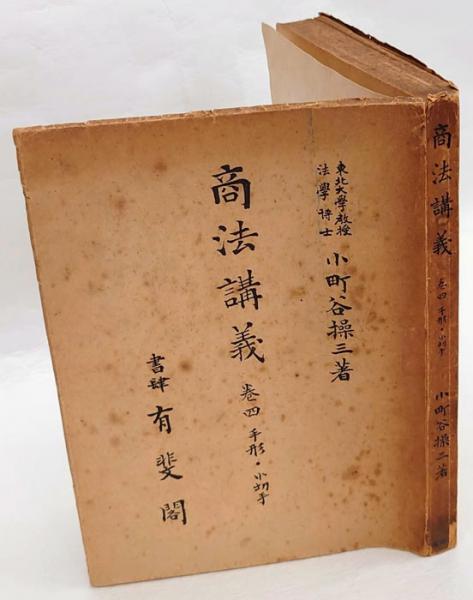 東北大學教授
法學博士
小町谷操三著
商法講義
巻四 手形・小切手
書肆 有斐閣
商法講義
巻四 手形・小切手
小町谷操三著